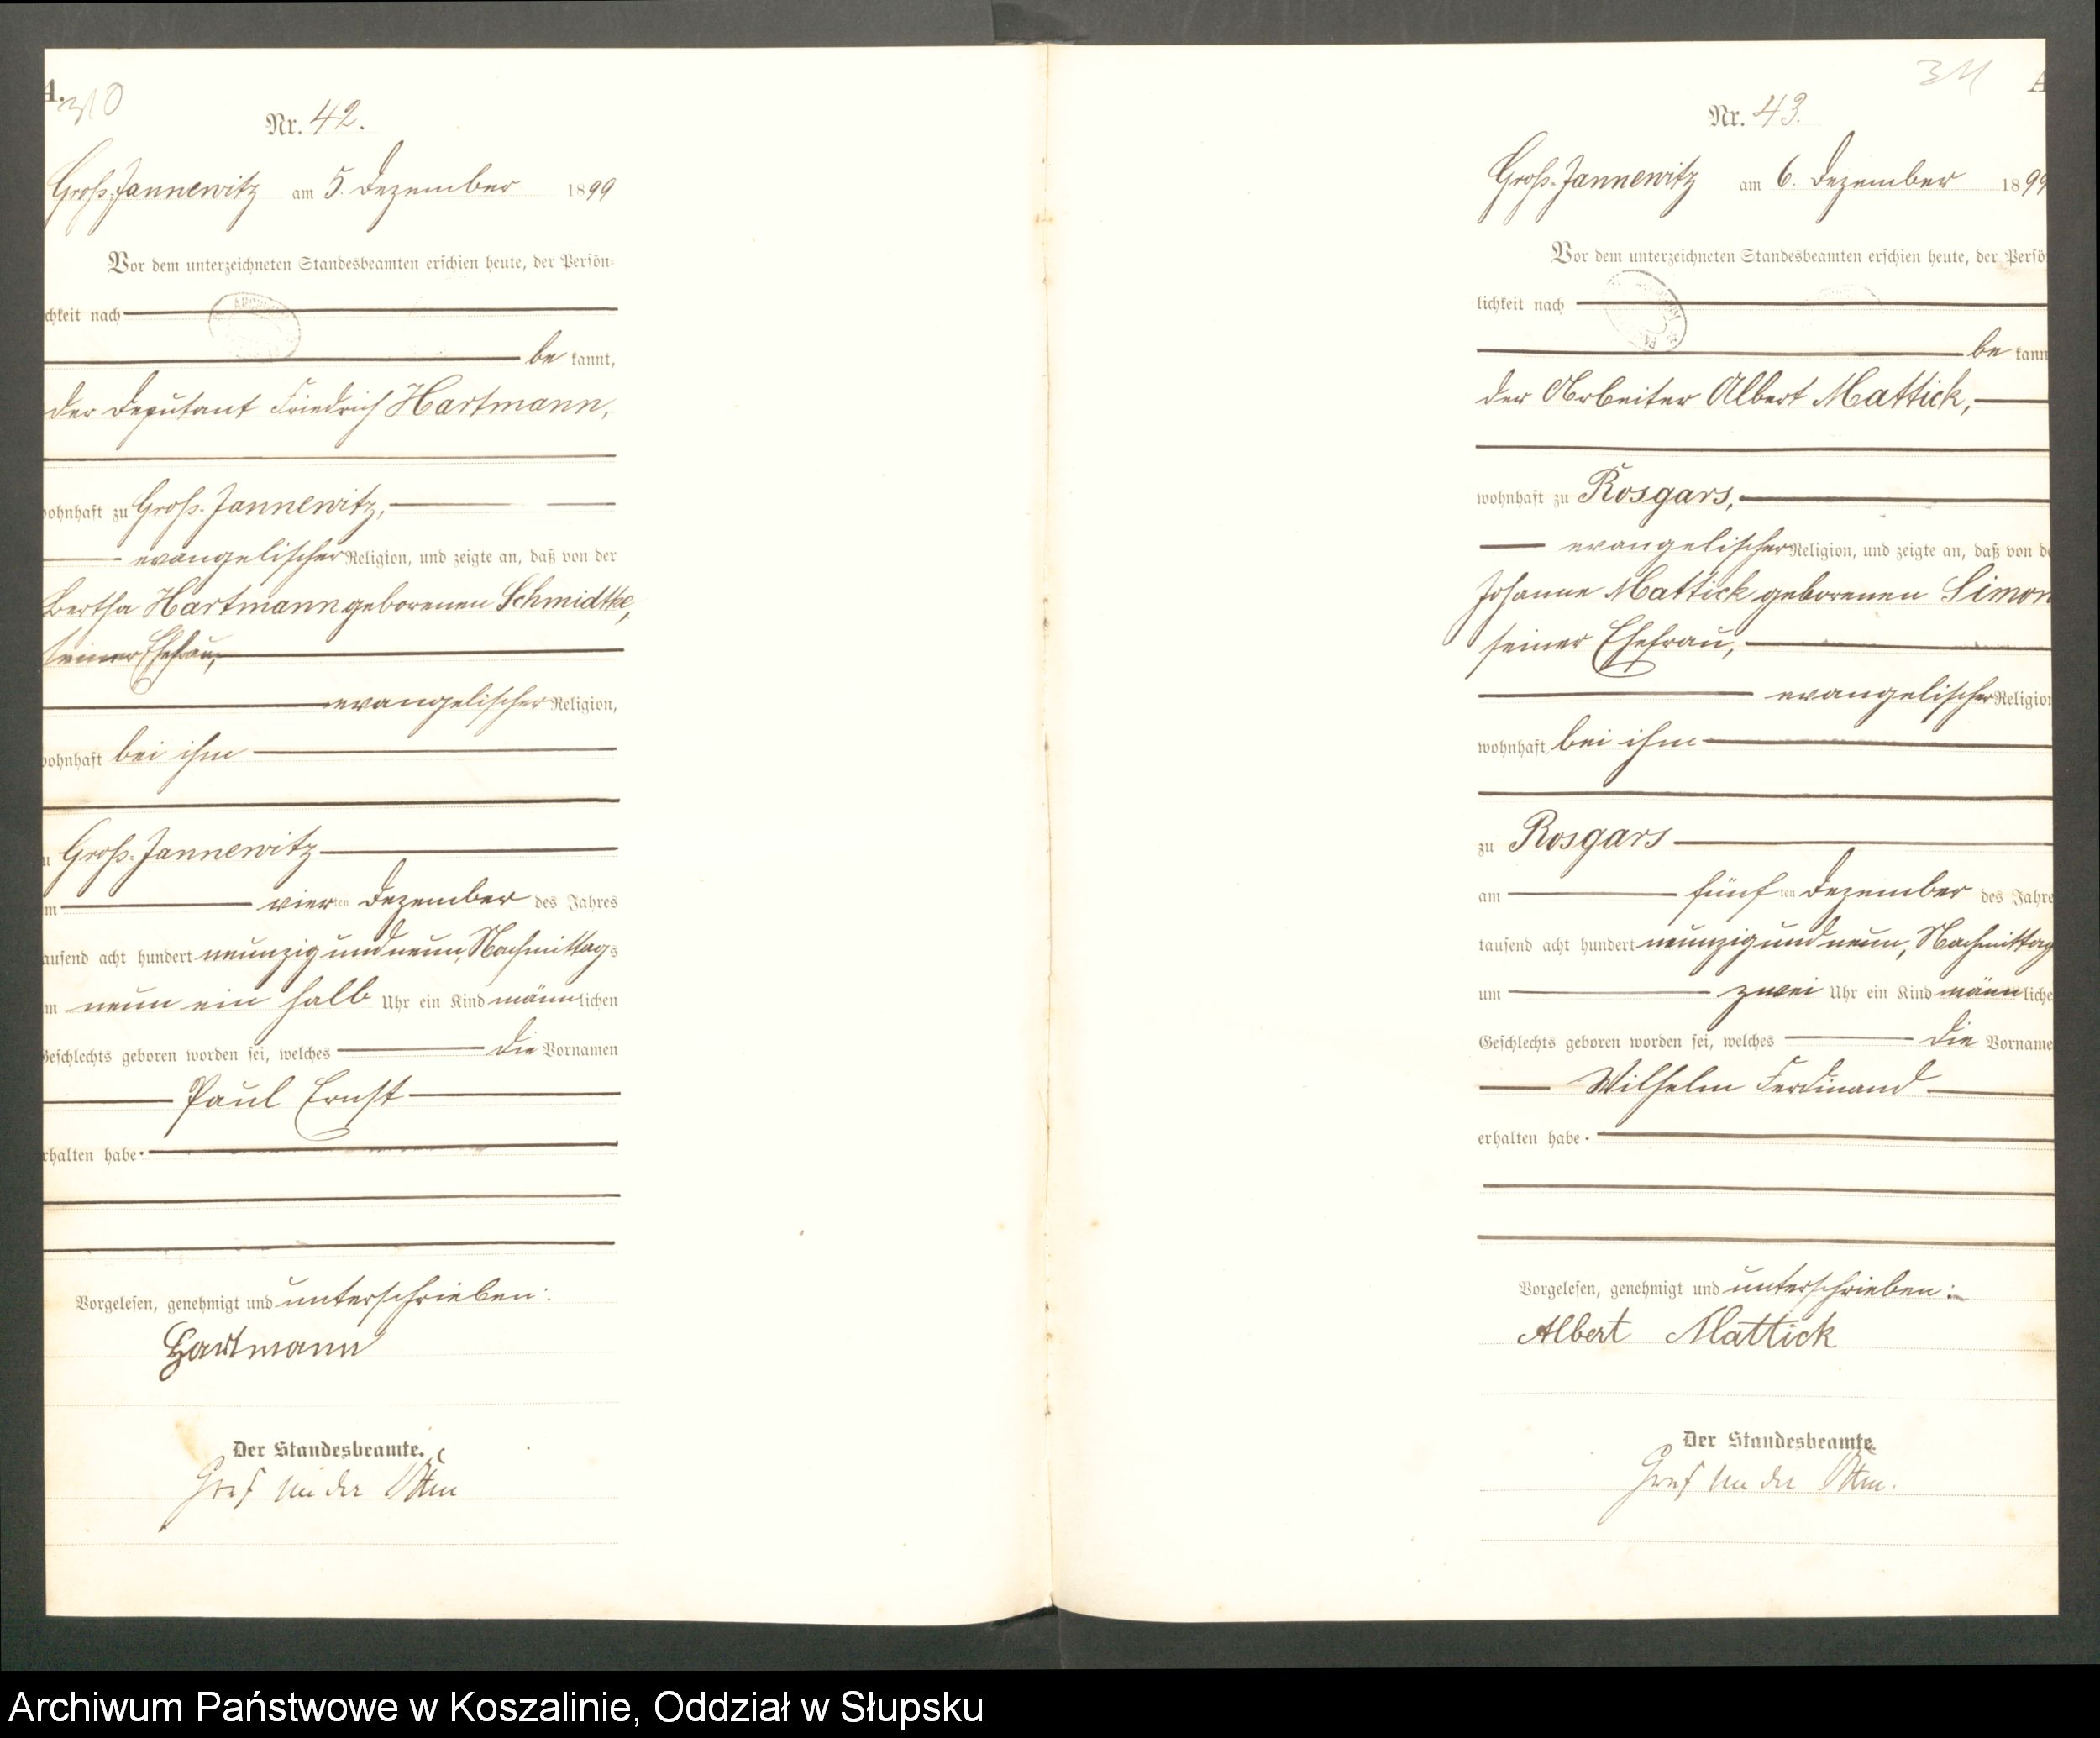 A.
310
Nr. 42.
Groß-Jannewitz am 5. Dezember 1899
Vor dem unterzeichneten Standesbeamten erschien heute, der Persön-
chkeit nach
be kannt,
der Deputant Friedrich Hartmann,
wohnhaft zu Groß-Jannewitz,
evangelischer Religion, und zeigte an, daß von der
Bertha Hartmann geborenen Schmidtke,
seiner Ehefrau,
evangelischer Religion,
wohnhaft bei ihm
u Groß-Jannewitz
m vier ten Dezember des Jahres
ausend acht hundert neunzig und neun, Nachmittags
m neun ein halb Uhr ein Kind männ lichen
Geschlechts geboren worden sei, welches die Vornamen
Paul Ernst
rhalten habe.
Vorgelesen, genehmigt und unterschrieben:
Hartmann
Der Standesbeamte.
Graf von der Osten
311
A
Nr. 43.
Groß-Jannewitz am 6. Dezember 1899
Vor dem unterzeichneten Standesbeamten erschien heute, der Persö
lichkeit nach
be kann
der Arbeiter Albert Mattick,
wohnhaft zu Rosgars,
evangelischer Religion, und zeigte an, daß von de
Johanne Mattick geborenen Simon
seiner Ehefrau,
evangelischer Religion
wohnhaft bei ihm
zu Rosgars
am fünf ten Dezember des Jahre
tausend acht hundert neunzig und neun, Nachmittag
um zwei Uhr ein Kind männ liche
Geschlechts geboren worden sei, welches die Vorname
Wilhelm Ferdinand
erhalten habe.
Vorgelesen, genehmigt und unterschrieben:
Albert Mattick
Der Standesbeamte.
Graf von der Osten.
Archiwum Państwowe w Koszalinie, Oddział w Słupsku